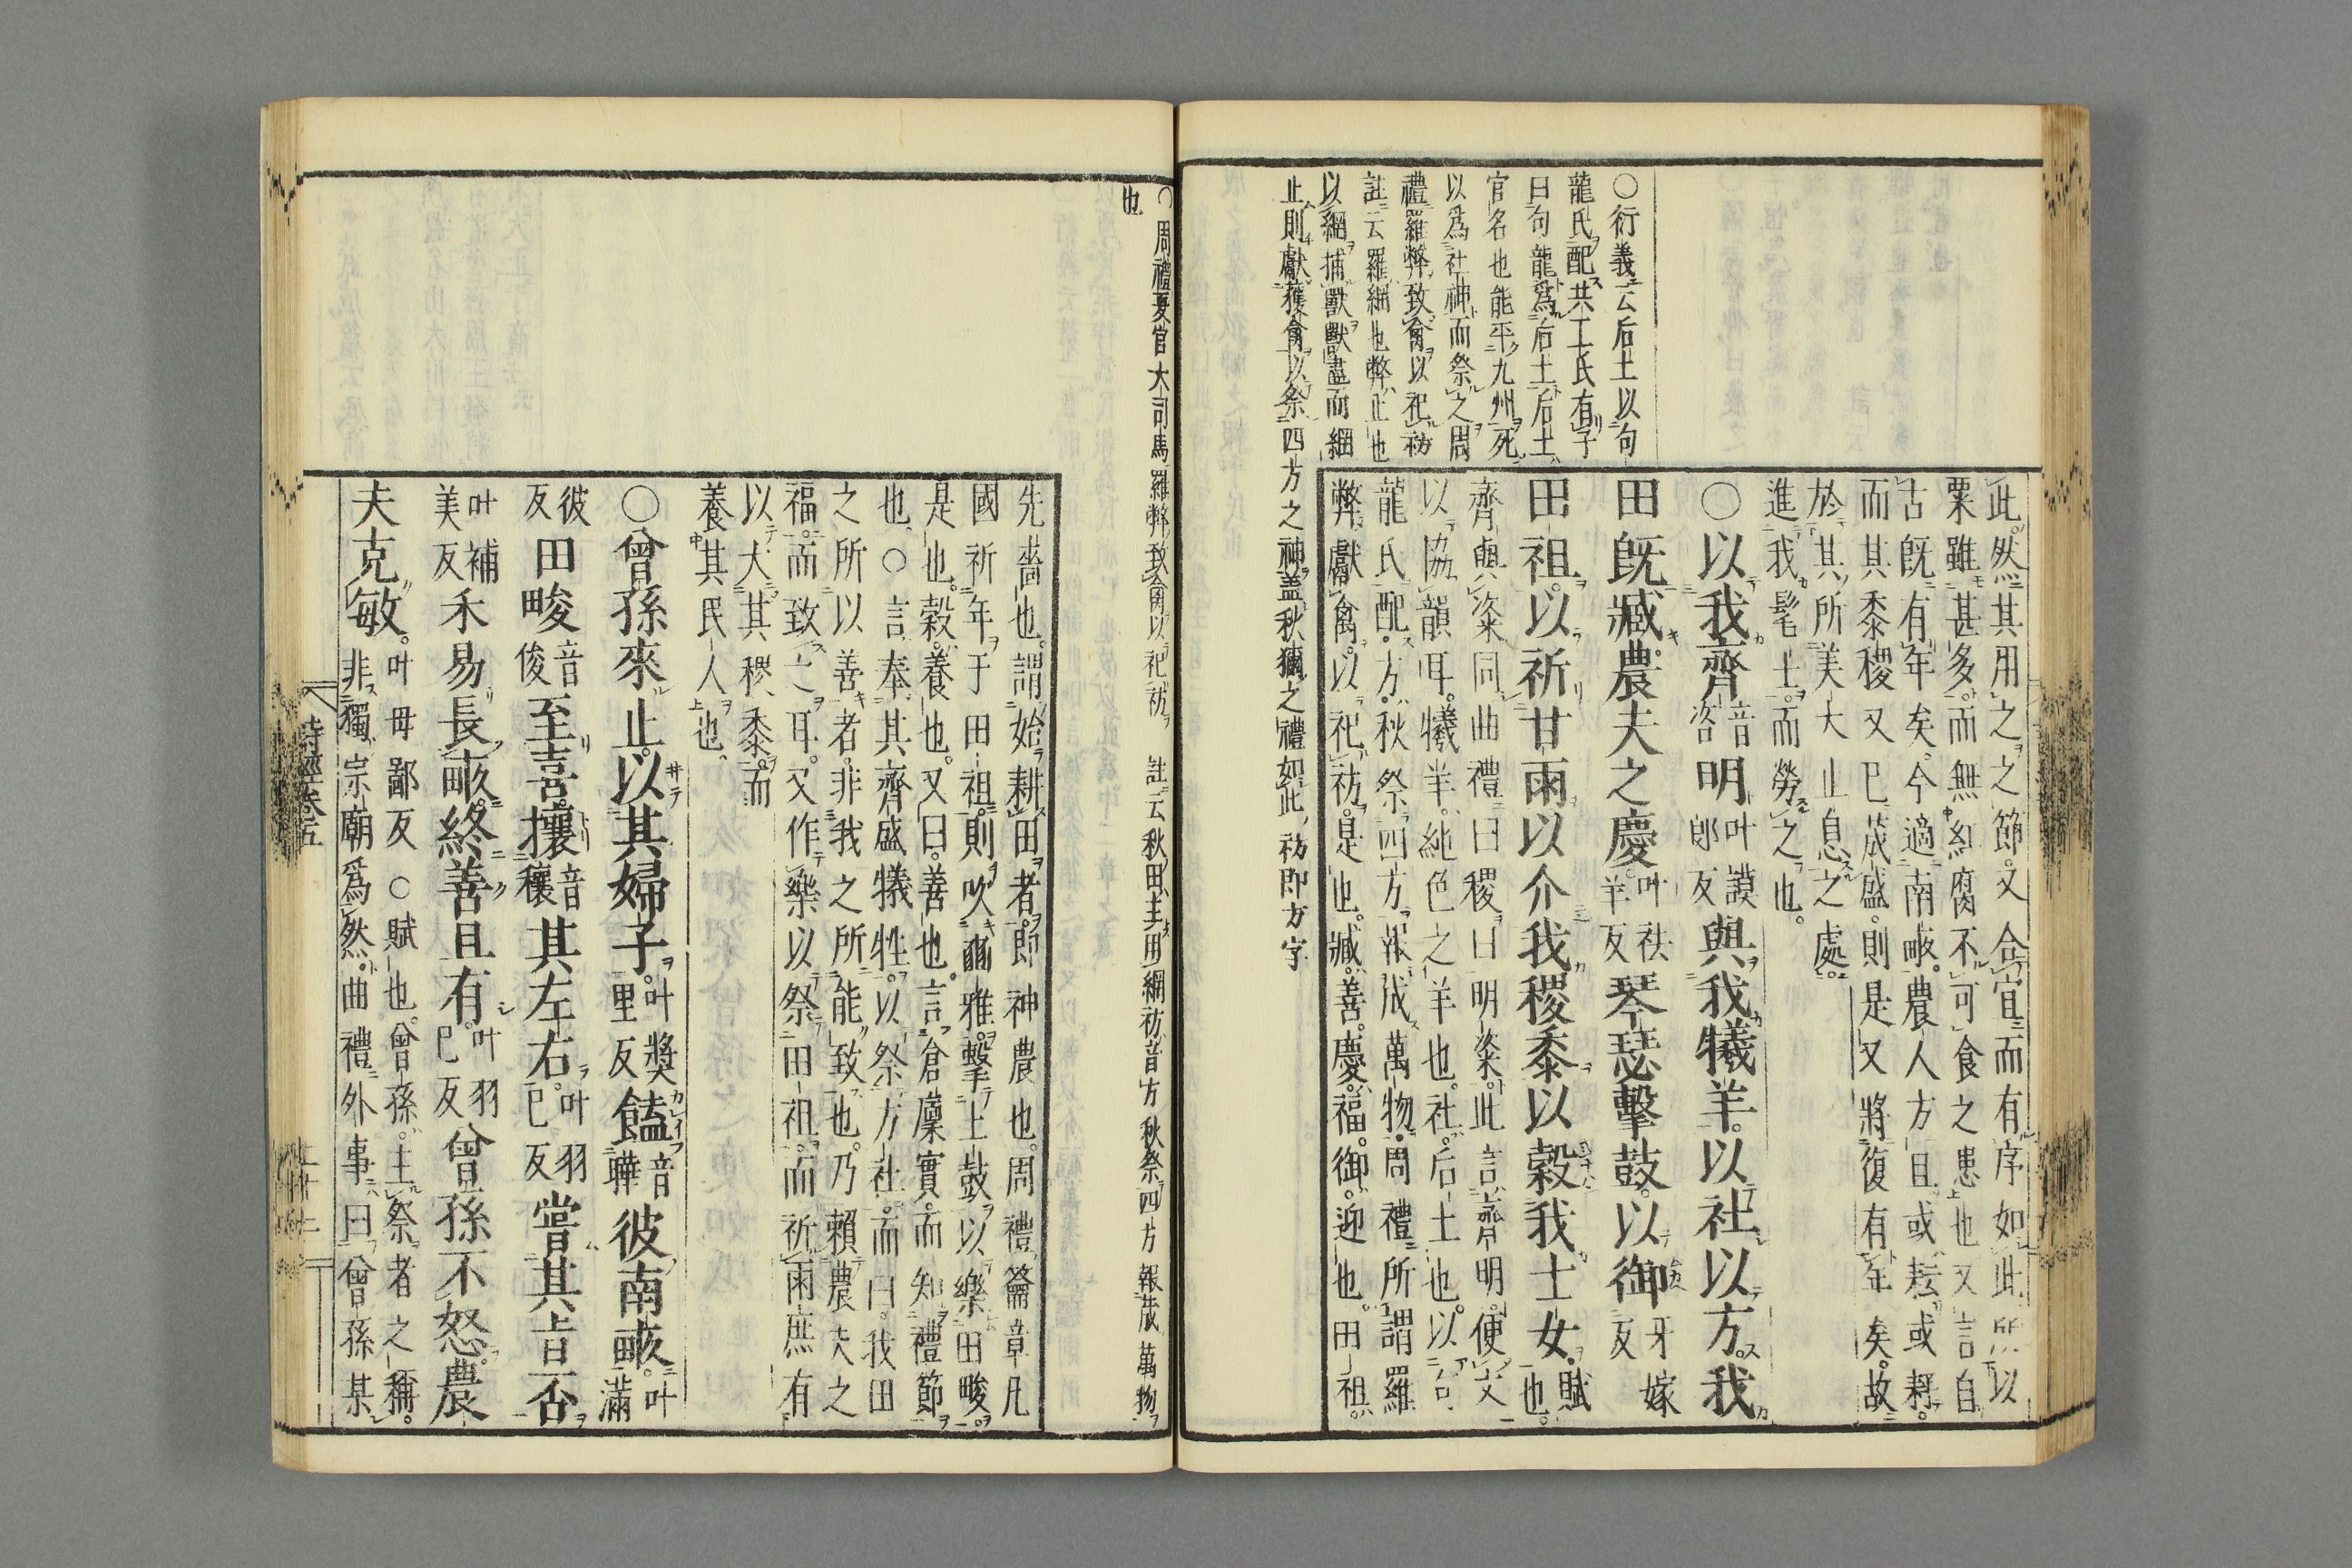 〇衍義云后土以句
龍氏配共工氏有子
曰句龍爲后土后土
官名也能平九州死
以爲社神而祭之周
禮羅弊致禽以祀祊
註云羅網也弊止也
以網捕獸獸盡而網
止則獻獲禽以祭四方之神盖秋獮之禮如此祊即方字
此然其用之之節又合宜而有序如此所以
粟雖甚多而無紅腐不可食之患也又言自
古既有年矣今適南畝農人方且或耘或耔
而其黍稷又已茂盛則是又將復有年矣故
於其所美大止息之處
進我髦士而勞之也
〇以我齊音咨明叶謨郎反與我犧羊以社以方我
田既臧農夫之慶叶祛羊反琴瑟擊鼓以御牙嫁反
田祖以祈甘雨以介我稷黍以穀我士女賦也
齊與粢同曲禮曰稷曰明粢此言齊明便文
以協韻耳犧羊純色之羊也社后土也以句
龍氏配方秋祭四方報成萬物周禮所謂羅
弊獻禽以祀祊是也臧善慶福御迎也田祖
〇周禮夏官大司馬羅弊致禽以祀祊 註云秋田主用網祊音方秋祭四方報成萬物
也
先嗇也謂始耕田者即神農也周禮籥章凡
國祈年于田祖則吹豳雅擊土鼓以樂田畯
是也穀養也又曰善也言倉廩實而知禮節
也〇言奉其齊盛犧牲以祭方社而曰我田
之所以善者非我之所能致也乃賴農夫之
福而致之耳又作樂以祭田祖而祈雨庶有
以大其稷黍而
養其民人也
〇曾孫來止以其婦子叶獎里反饁音曄彼南畝叶滿
彼反田畯音俊至喜攘音穰其左右叶羽已反嘗其旨否
叶補美反禾易長畝終善且有叶羽已反曾孫不怒農
夫克敏叶母鄙反〇賦也曾孫主祭者之稱
非獨宗廟爲然曲禮外事曰曾孫某
詩經卷五